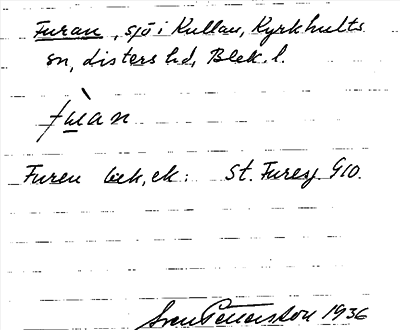 Furan, sjö i Kullan, Kyrkhults
sn, Listers hd, Blek. l.
fùan
Furen bek, ek: St. Furey. G10.
Sven Pettersson 1936